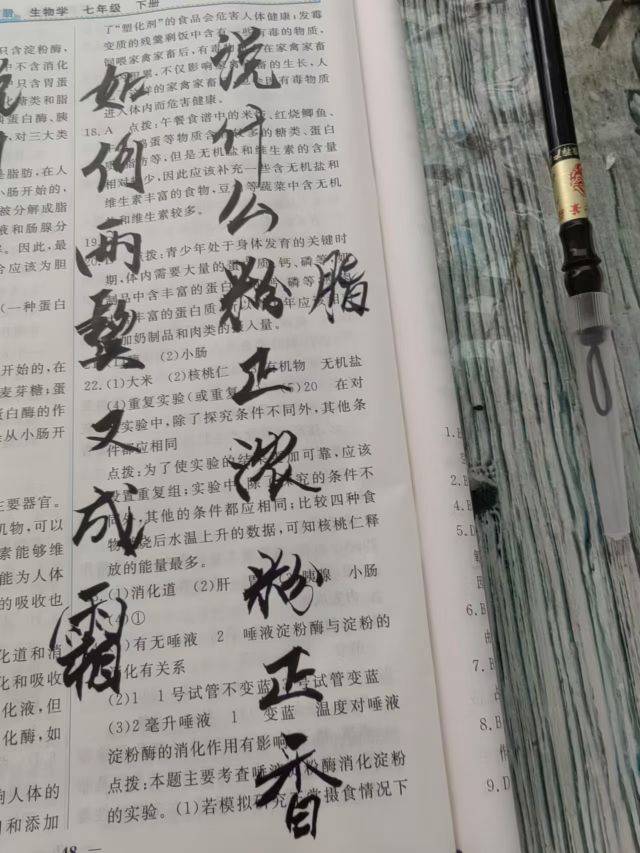 说什么粉正浓粉正香
脂
如何两鬓又成霜
生物学 七年级 下册
了“塑化剂”的食品会危害人体健康;发霉
变质的残羹剩饭中含有一些有毒的物质,
饲喂家禽家畜后,有毒 在家禽家畜
积累,不仅影响家禽家畜的生长,人
样的家禽家畜 有毒物质
进入体内而危害健康。
18. A 点拨:午餐食谱中的米饭、红烧鲫鱼、
鸡蛋等物质含 较多的糖类、蛋白
脂肪等,但是无机盐和维生素的含量
相对较少,因此应该补充一些含无机盐和
维生素丰富的食物,豆 等蔬菜中含无机
和维生素较多。
19.
20. 点拨:青少年处于身体发育的关键时
期,体内需要大量的蛋白质、钙、磷等,
制品中含丰富的蛋白 磷等
丰富的蛋白质 年应该
加奶制品和肉类的摄入量。
(2)小肠
22. (1)大米 (2)核桃仁 有机物 无机盐
(4)重复实验(或重复 (5)20 在对
实验中,除了探究条件不同外,其他条
件都应相同
点拨:为了使实验的结果更加可靠,应该
设置重复组;实验中,除了探究的条件不
同外,其他的条件都应相同;比较四种食
物燃烧后水温上升的数据,可知核桃仁释
放的能量最多。
(1)消化道 (2)肝 胰腺 小肠
(4)①
有无唾液 2 唾液淀粉酶与淀粉的
消化有关系
(2)1 1号试管不变蓝,2号试管变蓝
(3)2毫升唾液 1 变蓝 温度对唾液
淀粉酶的消化作用有影响
点拨:本题主要考查唾液淀粉酶消化淀粉
的实验。(1)若模拟研究正常摄食情况下
48
只含淀粉酶,
中不含消化
中只含胃蛋
化糖类和脂
胰蛋白酶、胰
,对三大类
是脂肪,在人
小肠开始的,
被分解成脂
液和肠腺分
。因此,最
分应该为胆
(一种蛋白
开始的,在
麦芽糖;蛋
蛋白酶的作
是从小肠开
主要器官。
机物,可以
素能够维
能为人体
的吸收也
化道和消
化和吸收
化液,但
化酶,如
响人体的
和添加
1. B
2. B
4. B
5. D
6. B
7. B
8. B
9. D